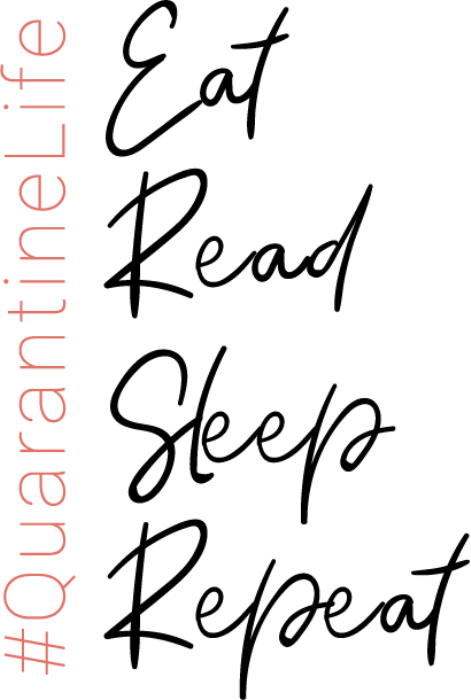 #QuarantineLife
Eat
Read
Sleep
Repeat